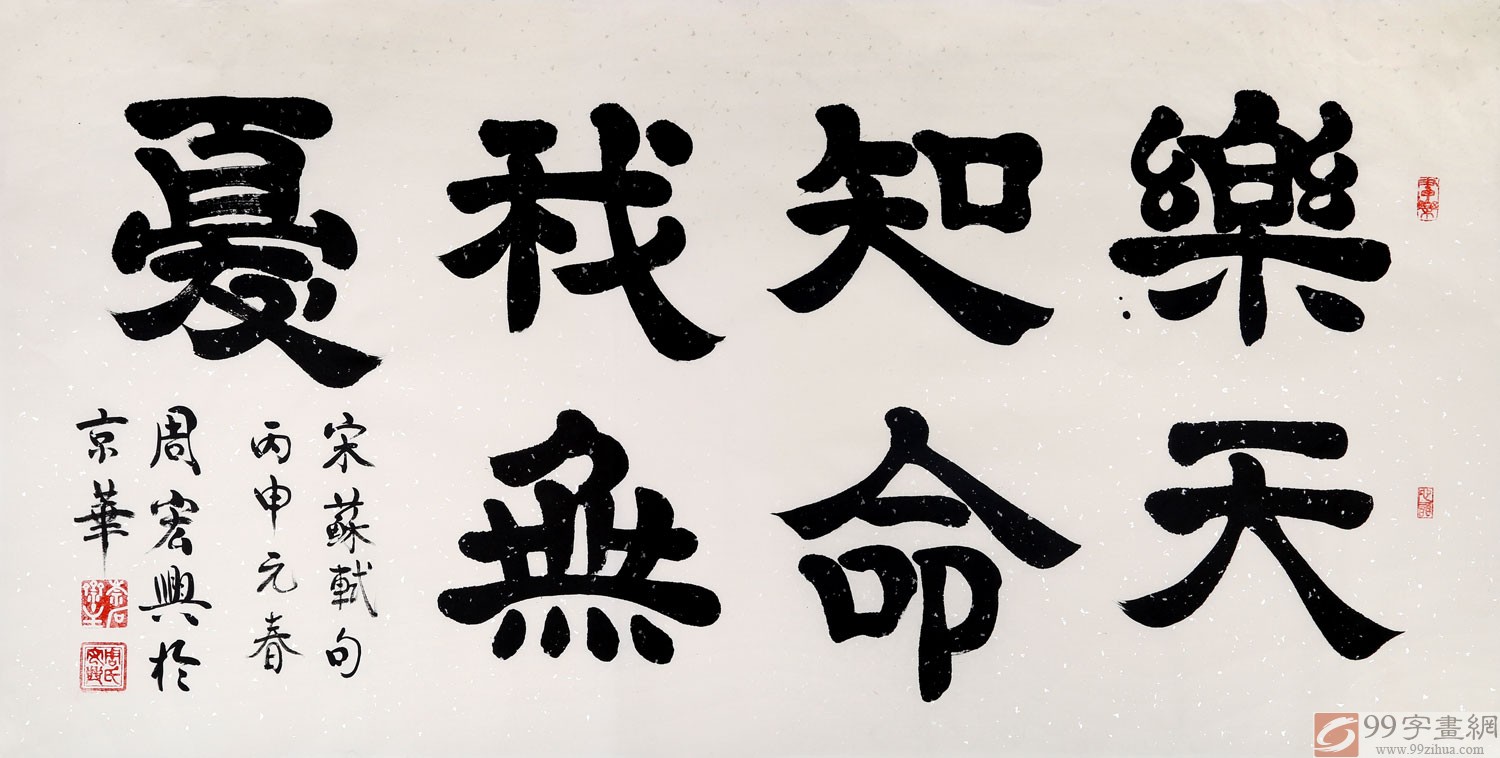 樂天
知命
我無
憂
宋蘇軾句
丙申元春
周宏興於
京華
99字畫網
www.99zihua.com